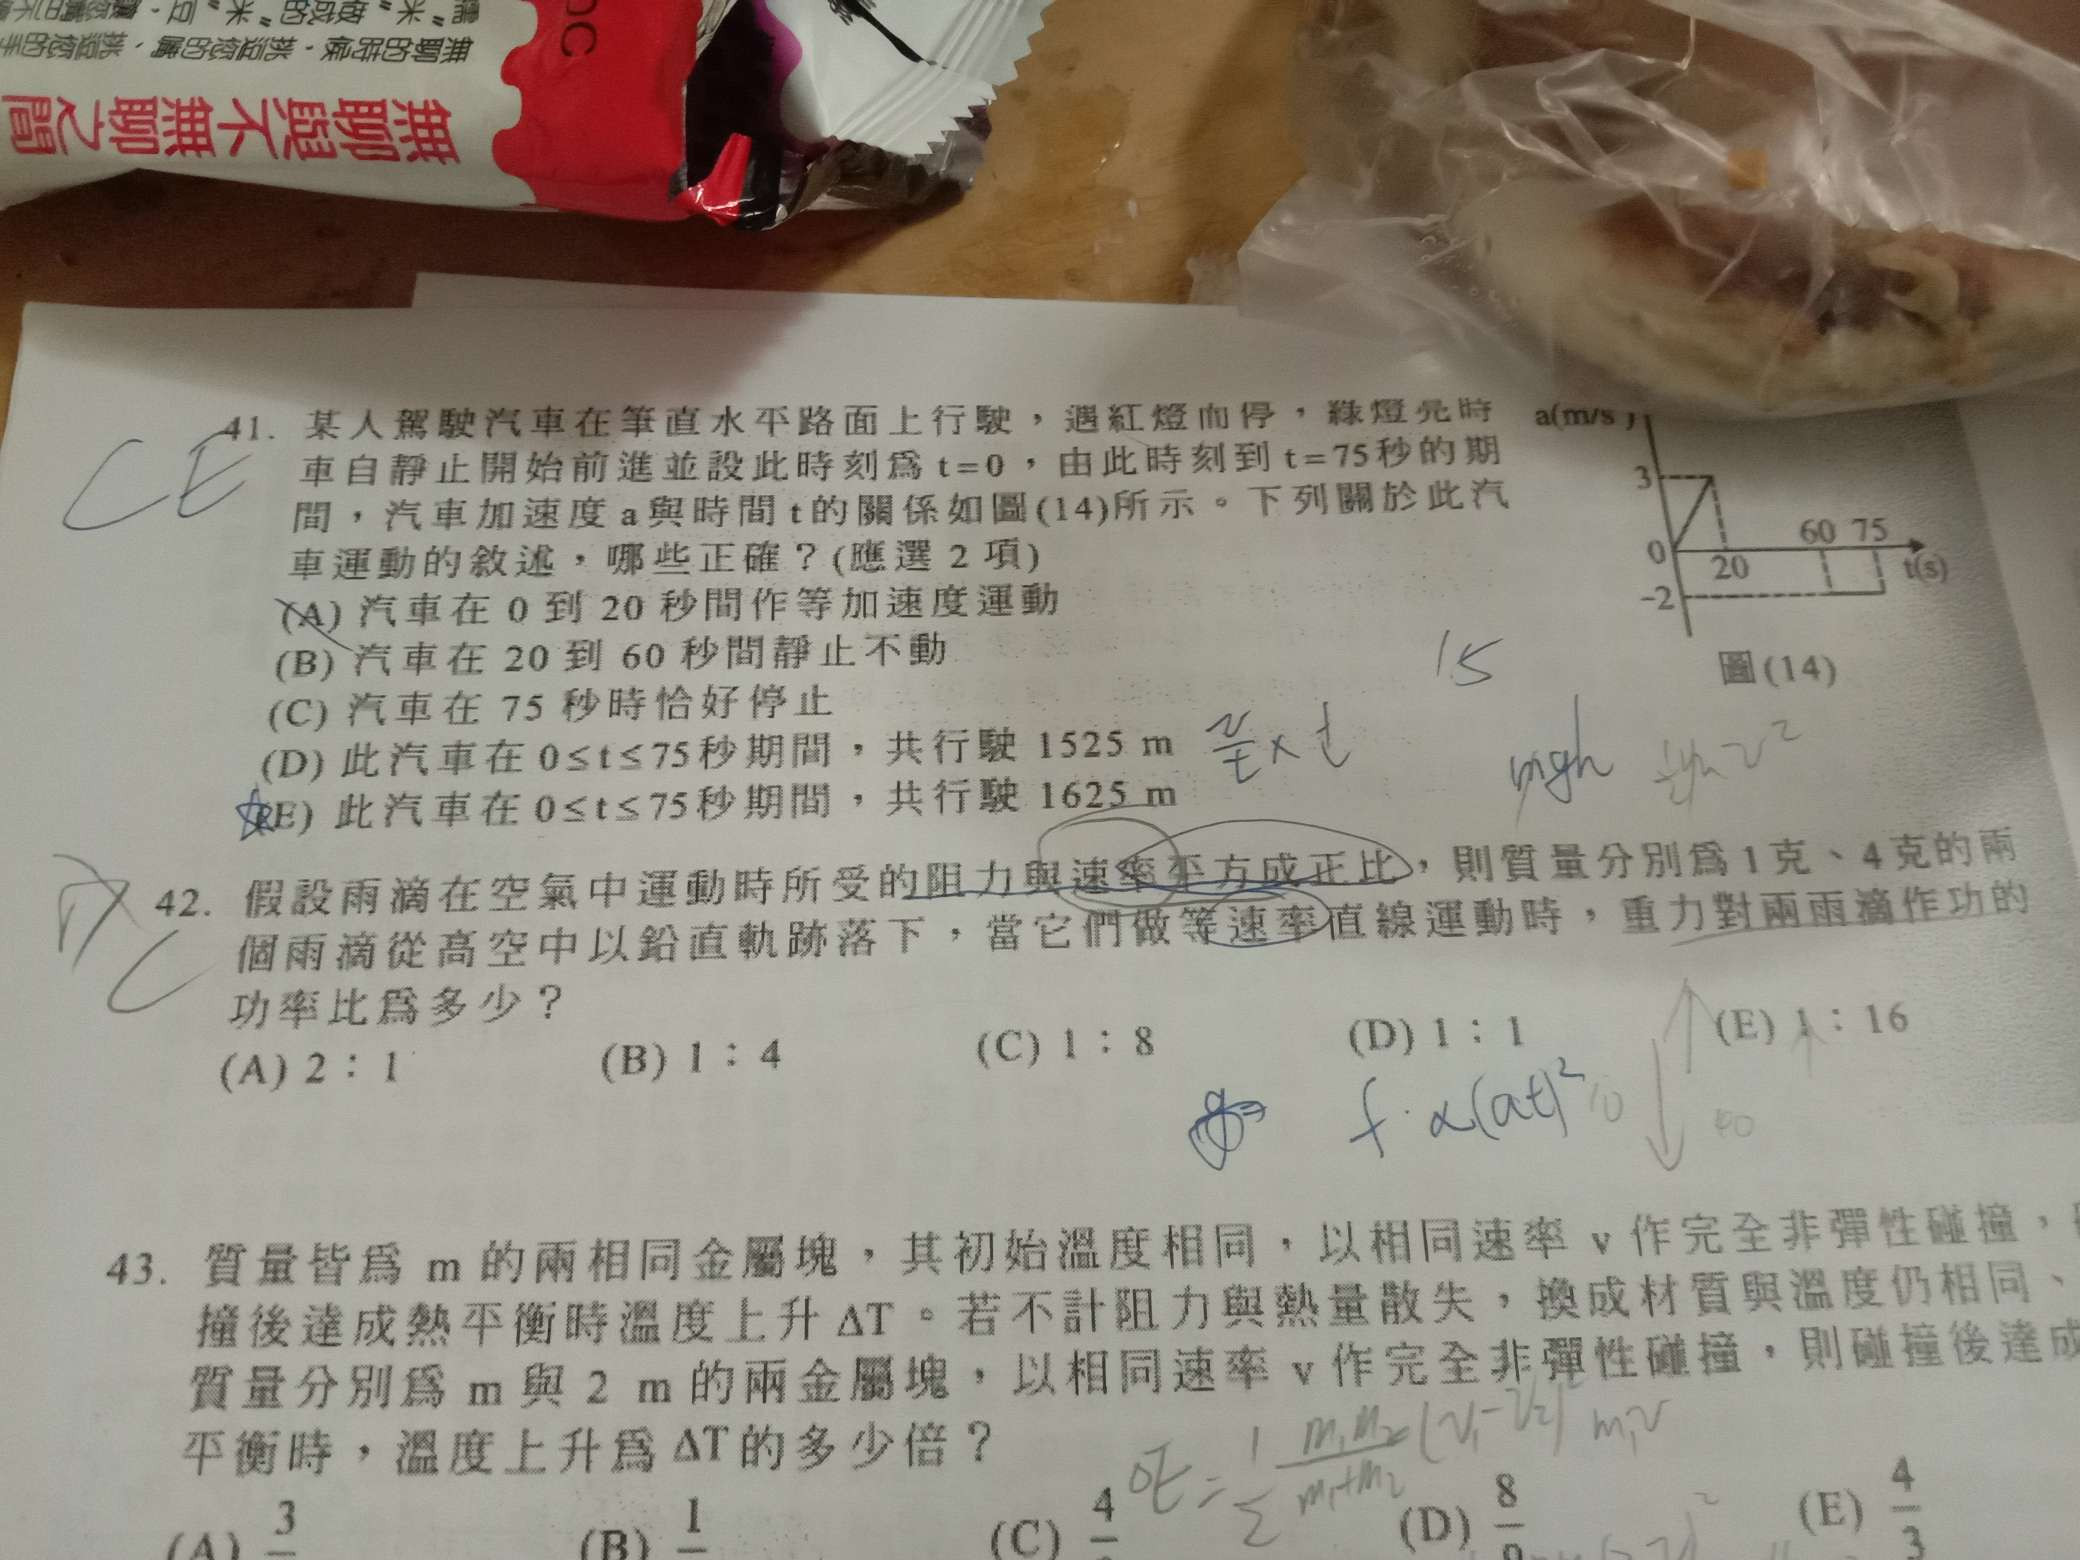 無聊與不無聊之間
41. 某人駕駛汽車在筆直水平路面上行駛，遇紅燈而停，綠燈亮時
車自靜止開始前進並設此時刻爲 t=0，由此時刻到 t=75秒的期
間，汽車加速度 a與時間 t的關係如圖(14)所示。下列關於此汽
車運動的敘述，哪些正確？(應選 2 項)
(A) 汽車在 0 到 20 秒間作等加速度運動
(B) 汽車在 20 到 60 秒間靜止不動
(C) 汽車在 75 秒時恰好停止
(D) 此汽車在 0≤t≤75秒期間，共行駛 1525 m
(E) 此汽車在 0≤t≤75秒期間，共行駛 1625 m
CE
a(m/s
3
0
-2
20
60 75
t(s)
圖(14)
15
v/t × t
42. 假設雨滴在空氣中運動時所受的阻力與速率平方成正比，則質量分別爲 1克、4克的兩
個雨滴從高空中以鉛直軌跡落下，當它們做等速率直線運動時，重力對兩雨滴作功的
功率比爲多少？
(A) 2：1 (B) 1：4 (C) 1：8 (D) 1：1 (E) 1：16
C
f ∝(at)²
43. 質量皆爲 m 的兩相同金屬塊，其初始溫度相同，以相同速率 v 作完全非彈性碰撞，
撞後達成熱平衡時溫度上升 ΔT。若不計阻力與熱量散失，換成材質與溫度仍相同、
質量分別爲 m 與 2 m 的兩金屬塊，以相同速率 v 作完全非彈性碰撞，則碰撞後達成
平衡時，溫度上升爲 ΔT的多少倍？
(A) 3 (B) 1 (C) 4 (D) 8 (E) 4/3